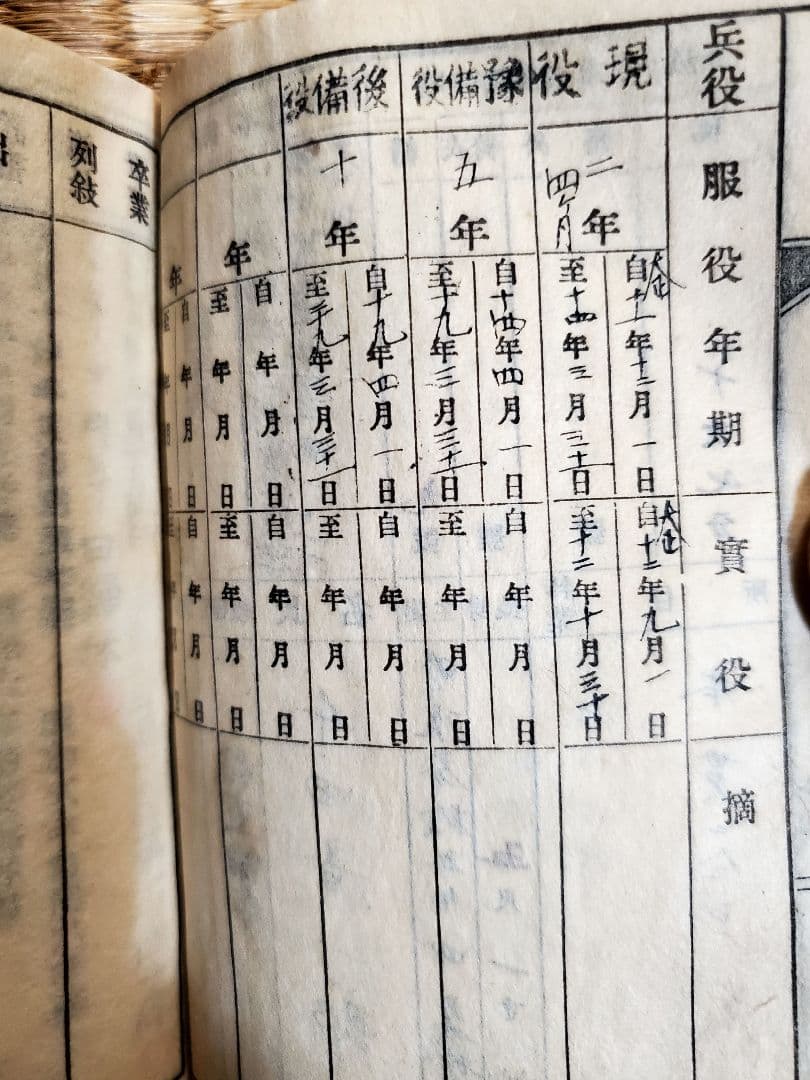 兵役
服役年期
實役
摘
現役
二年
四ヶ月
大正
自十一年十二月一日
至十四年三月三十一日
大正
自十二年九月一日
至十二年十月三十日
豫備役
五年
自十四年四月一日
至十九年三月三十一日
自 年 月 日
至 年 月 日
後備役
十年
自十九年四月一日
至二十九年三月三十一日
自 年 月 日
至 年 月 日
年
自 年 月 日
至 年 月 日
自 年 月 日
至 年 月 日
年
自 年 月 日
至 年 月
自 年 月 日
至
卒業
列敍